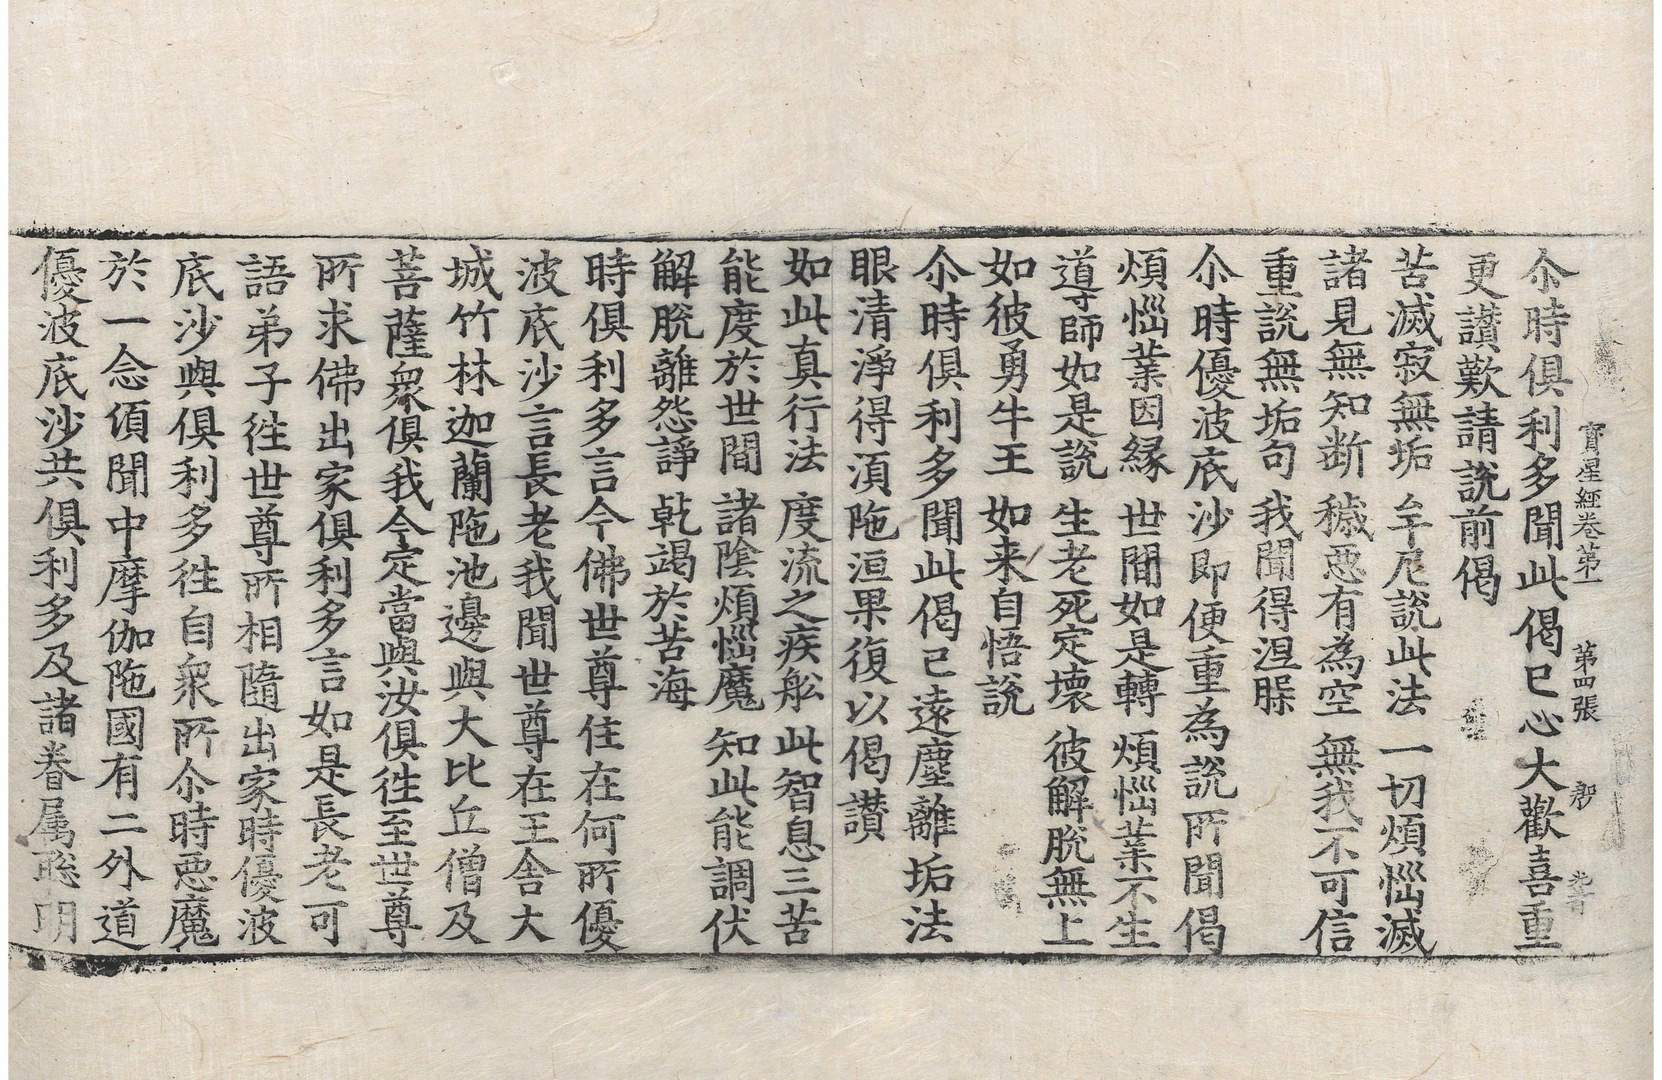 寳星經卷第一 第四張
尒時俱利多聞此偈已心大歡喜重
更讃歎請說前偈
苦滅寂無垢 牟尼說此法 一切煩惱滅
諸見無知断 穢惡有為空 無我不可信
重說無垢句 我聞得涅槃
尒時優波底沙即便重為說所聞偈
煩惱業因緣 世間如是轉 煩惱業不生
導師如是說 生老死定壞 彼解脫無上
如彼勇牛王 如来自悟說
尒時俱利多聞此偈已遠塵離垢法
眼清淨得湏陁洹果復以偈讃
如此真行法 度流之疾舩 此智息三苦
能度於世間 諸陰煩惱魔 知此能調伏
解脫離怨諍 乹竭於苦海
時俱利多言今佛世尊住在何所優
波底沙言長老我聞世尊在王舍大
城竹林迦蘭陁池邊與大比丘僧及
菩薩衆俱我今定當與汝俱徃至世尊
所求佛出家俱利多言如是長老可
語弟子徃世尊所相隨出家時優波
底沙與俱利多徃自衆所尒時惡魔
於一念頃聞中摩伽陁國有二外道
優波底沙共俱利多及諸眷属聡明